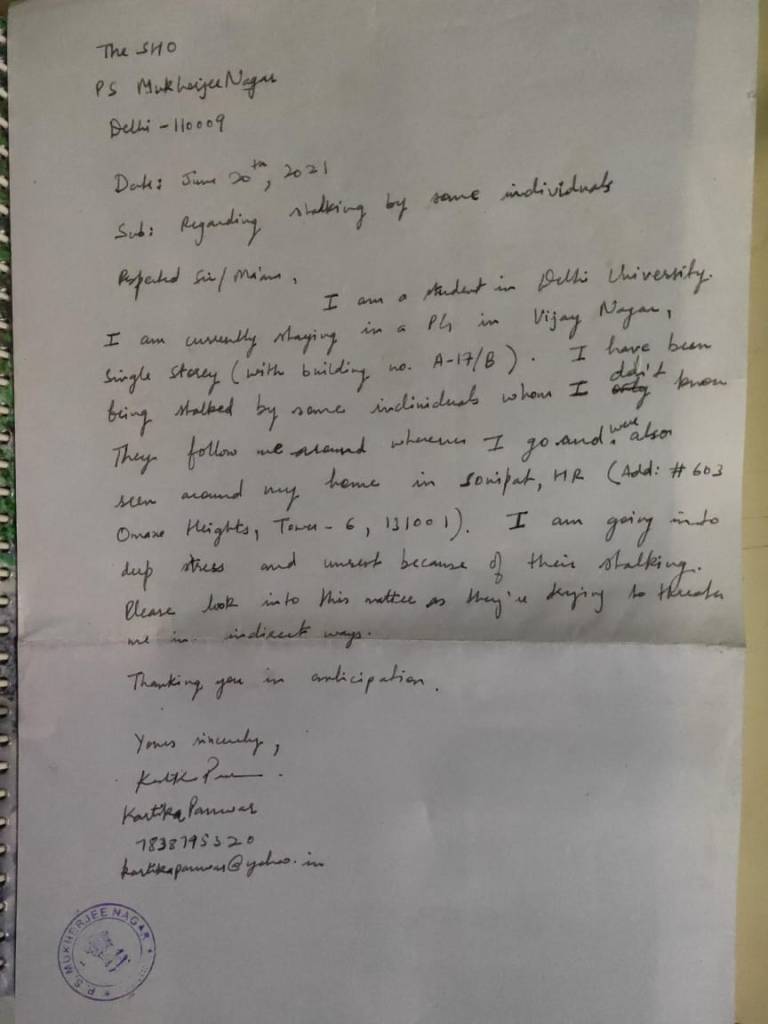 The SHO
PS Mukherjee Nagar
Delhi - 110009
Date: June 20th, 2021
Sub: Regarding stalking by some individuals
Respected Sir/Ma'am,
I am a student in Delhi University.
I am currently staying in a PG in Vijay Nagar,
Single Storey (with building no. A-17/B). I have been
being stalked by some individuals whom I don't know
They follow me around wherever I go and were also
seen around my home in Sonipat, HR (Add: # 603
Omaxe Heights, Tower - 6, 131001). I am going into
deep stress and unrest because of their stalking.
Please look into this matter as they're trying to threaten
me in indirect ways.
Thanking you in anticipation.
Yours sincerely,
Kartika Panwar
7838795520
kartikapanwar@yahoo.in
P.S. MUKHERJEE NAGAR